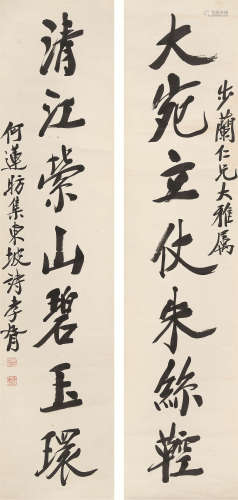 步蘭仁兄大雅属
大宛立仗朱絲鞚
清江縈山碧玉環
何蓮舫集東坡詩李膺